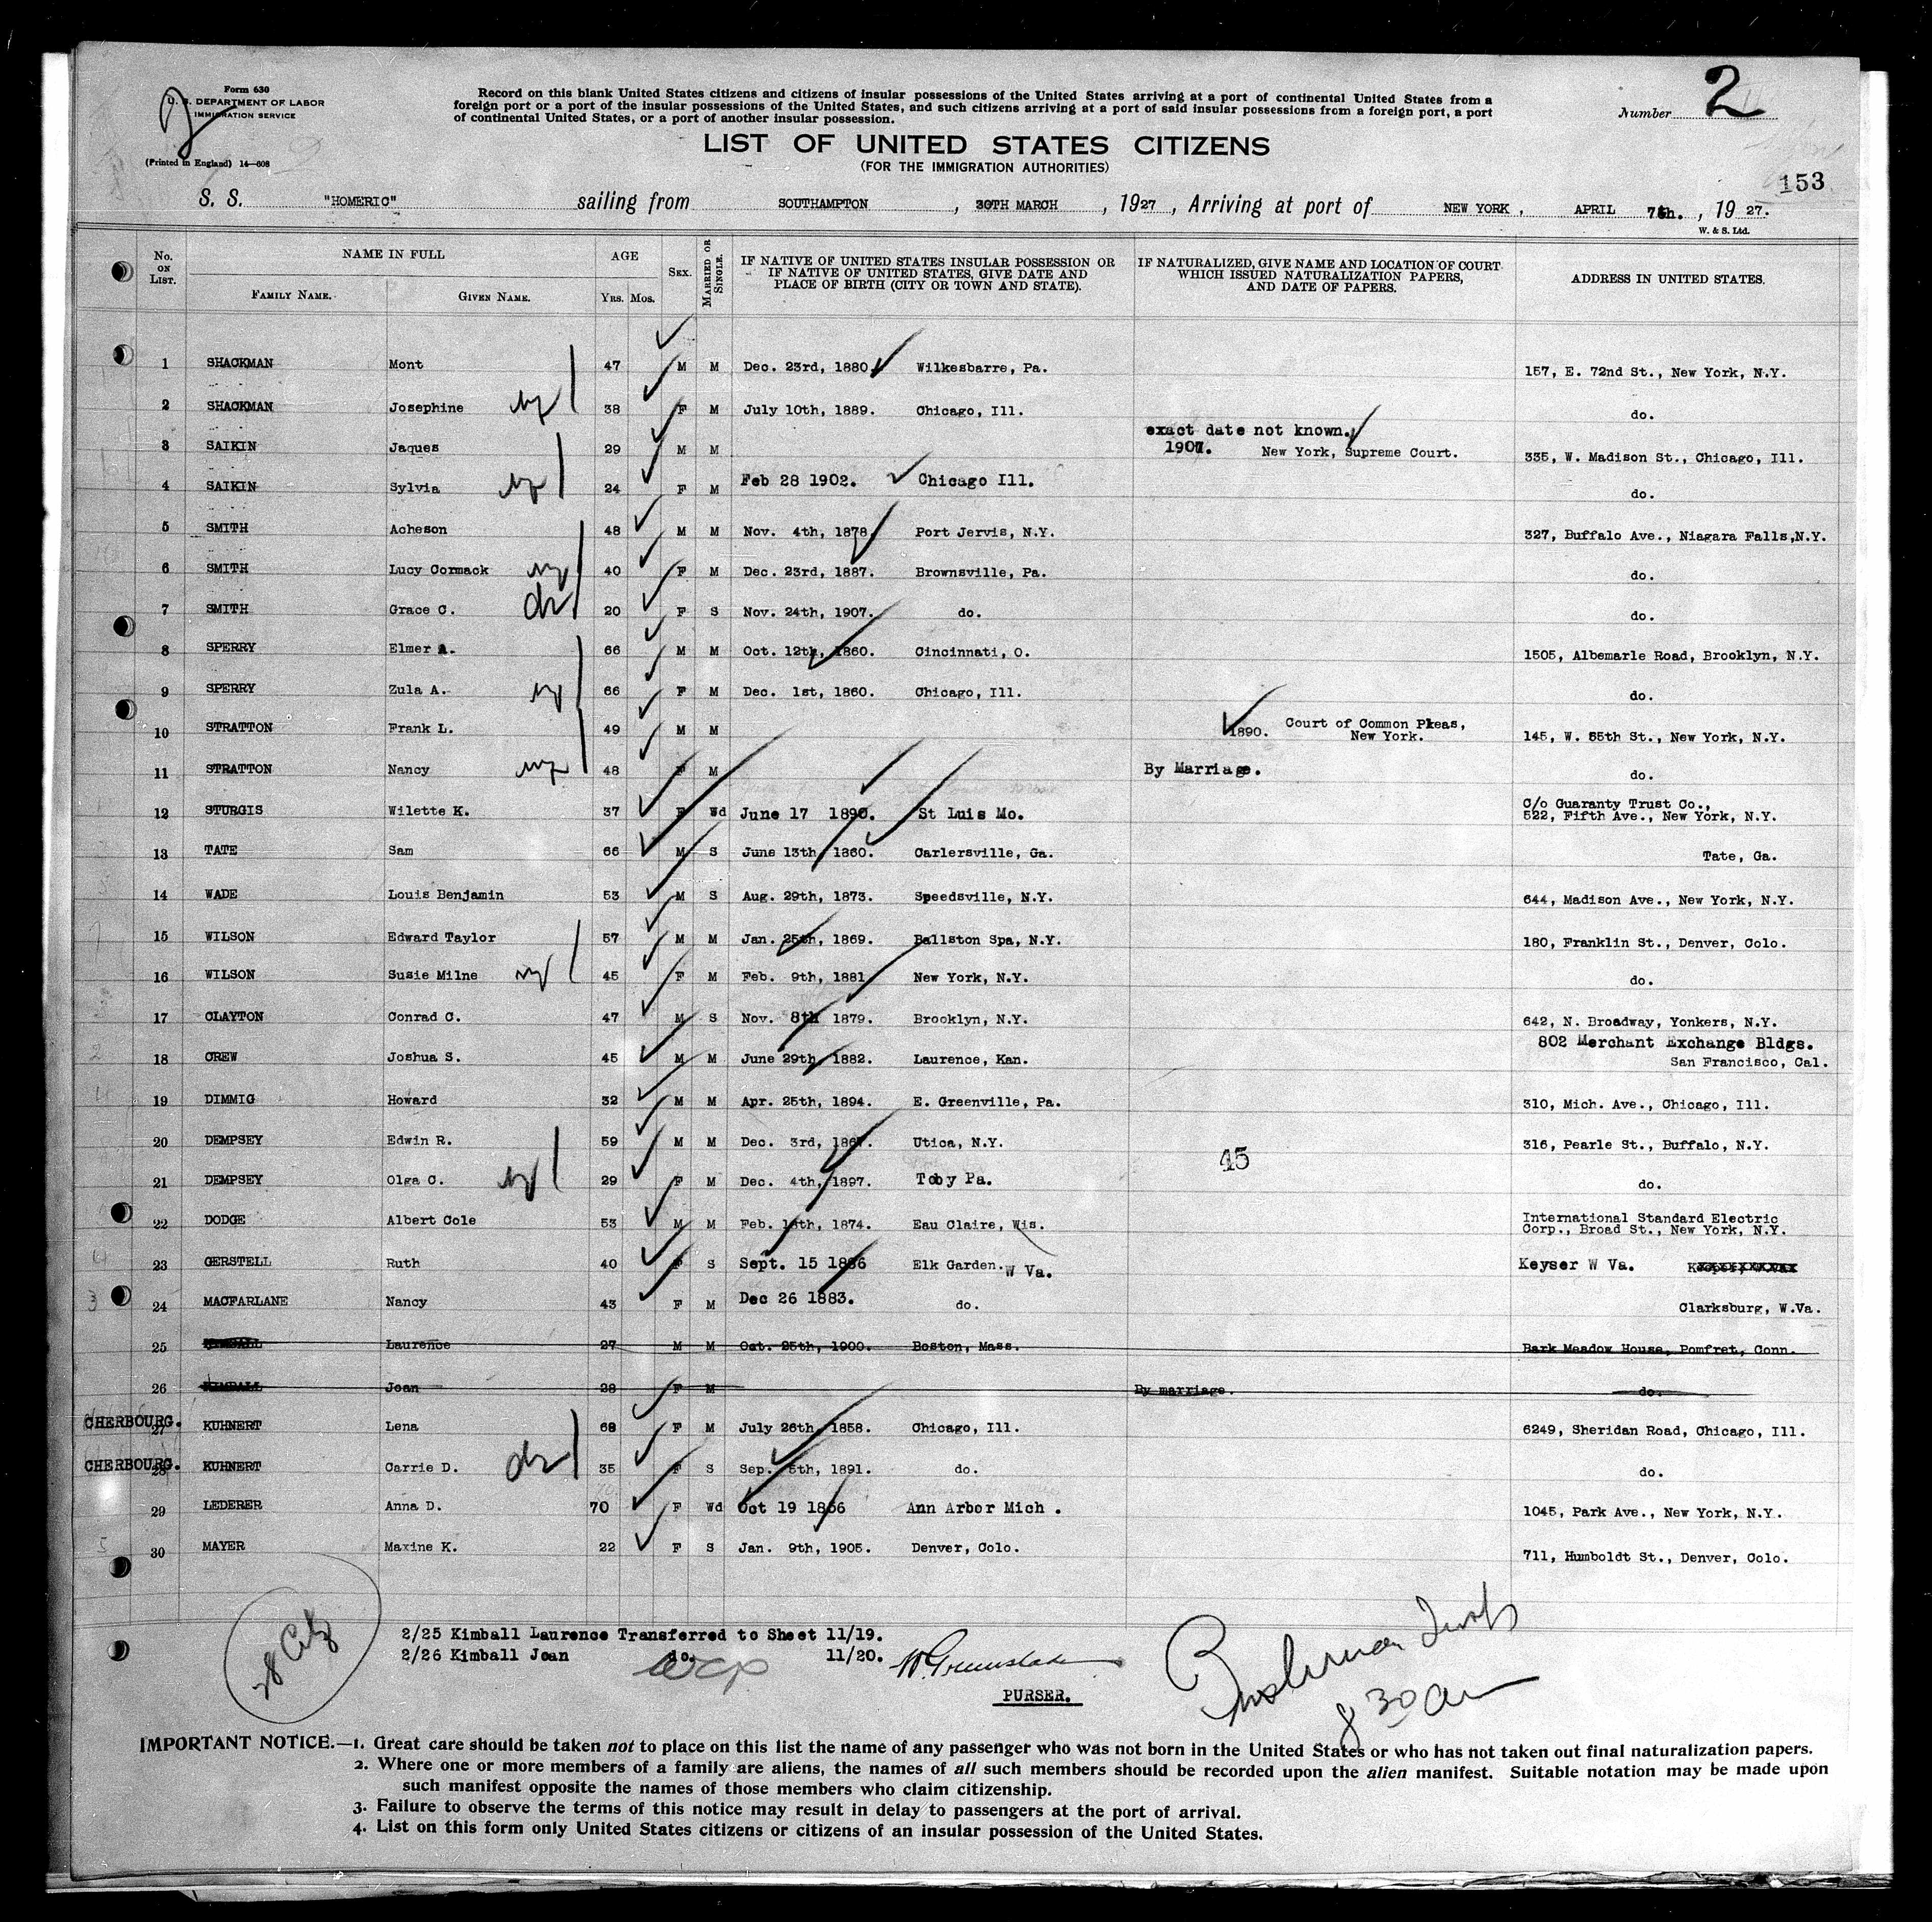 Form 630
U. S. DEPARTMENT OF LABOR
IMMIGRATION SERVICE
(Printed in England) 14—608
Record on this blank United States citizens and citizens of insular possessions of the United States arriving at a port of continental United States from a
foreign port or a port of the insular possessions of the United States, and such citizens arriving at a port of said insular possessions from a foreign port, a port
of continental United States, or a port of another insular possession.
Number 2
LIST OF UNITED STATES CITIZENS
(FOR THE IMMIGRATION AUTHORITIES)
153
S. S. "HOMERIC" sailing from SOUTHAMPTON, 30TH MARCH, 1927, Arriving at port of NEW YORK, APRIL 7th., 1927.
W. & S. Ltd.
No. ON LIST. NAME IN FULL AGE SEX. MARRIED OR SINGLE. IF NATIVE OF UNITED STATES INSULAR POSSESSION OR IF NATIVE OF UNITED STATES, GIVE DATE AND PLACE OF BIRTH (CITY OR TOWN AND STATE). IF NATURALIZED, GIVE NAME AND LOCATION OF COURT WHICH ISSUED NATURALIZATION PAPERS, AND DATE OF PAPERS. ADDRESS IN UNITED STATES.
FAMILY NAME. GIVEN NAME. YRS. MOS.
1 SHACKMAN Mont 47 M M Dec. 23rd, 1880 Wilkesbarre, Pa. 157, E. 72nd St., New York, N.Y.
2 SHACKMAN Josephine 38 F M July 10th, 1889. Chicago, Ill. do.
exact date not known.
3 SAIKIN Jaques 29 M M 1907. New York, Supreme Court. 335, W. Madison St., Chicago, Ill.
4 SAIKIN Sylvia 24 F M Feb 28 1902. Chicago Ill. do.
5 SMITH Acheson 48 M M Nov. 4th, 1878. Port Jervis, N.Y. 327, Buffalo Ave., Niagara Falls,N.Y.
6 SMITH Lucy Cormack 40 F M Dec. 23rd, 1887. Brownsville, Pa. do.
7 SMITH Grace C. 20 F S Nov. 24th, 1907. do. do.
8 SPERRY Elmer A. 66 M M Oct. 12th, 1860. Cincinnati, O. 1505, Albemarle Road, Brooklyn, N.Y.
9 SPERRY Zula A. 66 F M Dec. 1st, 1860. Chicago, Ill. do.
10 STRATTON Frank L. 49 M M 1890. Court of Common Pleas, New York. 145, W. 55th St., New York, N.Y.
11 STRATTON Nancy 48 F M By Marriage. do.
12 STURGIS Wilette K. 37 F Wd June 17 1890. St Luis Mo. C/o Guaranty Trust Co., 522, Fifth Ave., New York, N.Y.
13 TATE Sam 66 M S June 13th, 1860. Carlersville, Ga. Tate, Ga.
14 WADE Louis Benjamin 53 M S Aug. 29th, 1873. Speedsville, N.Y. 644, Madison Ave., New York, N.Y.
15 WILSON Edward Taylor 57 M M Jan. 25th, 1869. Ballston Spa, N.Y. 180, Franklin St., Denver, Colo.
16 WILSON Susie Milne 45 F M Feb. 9th, 1881 New York, N.Y. do.
17 CLAYTON Conrad C. 47 M S Nov. 8th 1879. Brooklyn, N.Y. 642, N. Broadway, Yonkers, N.Y.
18 CREW Joshua S. 45 M M June 29th, 1882. Laurence, Kan. 802 Merchant Exchange Bldgs. San Francisco, Cal.
19 DIMMIG Howard 32 M M Apr. 25th, 1894. E. Greenville, Pa. 310, Mich. Ave., Chicago, Ill.
20 DEMPSEY Edwin R. 59 M M Dec. 3rd, 1867. Utica, N.Y. 316, Pearle St., Buffalo, N.Y.
45
21 DEMPSEY Olga C. 29 F M Dec. 4th, 1897. Toby Pa. do.
22 DODGE Albert Cole 53 M M Feb. 18th, 1874. Eau Claire, Wis. International Standard Electric Corp., Broad St., New York, N.Y.
23 GERSTELL Ruth 40 F S Sept. 15 1886 Elk Garden. W Va. Keyser W Va.
24 MACFARLANE Nancy 43 F M Dec 26 1883. do. Clarksburg, W.Va.
25 KIMBALL Laurence 27 M M Oct. 25th, 1900. Boston, Mass. Bark Meadow House, Pomfret, Conn.
26 KIMBALL Joan 28 F M By marriage. do.
CHERBOURG. 27 KUHNERT Lena 68 F M July 26th, 1858. Chicago, Ill. 6249, Sheridan Road, Chicago, Ill.
CHERBOURG. 28 KUHNERT Carrie D. 35 F S Sep. 5th, 1891. do. do.
29 LEDERER Anna D. 70 F Wd Oct 19 1856 Ann Arbor Mich . 1045, Park Ave., New York, N.Y.
30 MAYER Maxine K. 22 F S Jan. 9th, 1905. Denver, Colo. 711, Humboldt St., Denver, Colo.
28 Citz
2/25 Kimball Laurence Transferred to Sheet 11/19.
2/26 Kimball Joan do. 11/20.
PURSER.
8 30 am
IMPORTANT NOTICE.—1. Great care should be taken not to place on this list the name of any passenger who was not born in the United States or who has not taken out final naturalization papers.
2. Where one or more members of a family are aliens, the names of all such members should be recorded upon the alien manifest. Suitable notation may be made upon
such manifest opposite the names of those members who claim citizenship.
3. Failure to observe the terms of this notice may result in delay to passengers at the port of arrival.
4. List on this form only United States citizens or citizens of an insular possession of the United States.